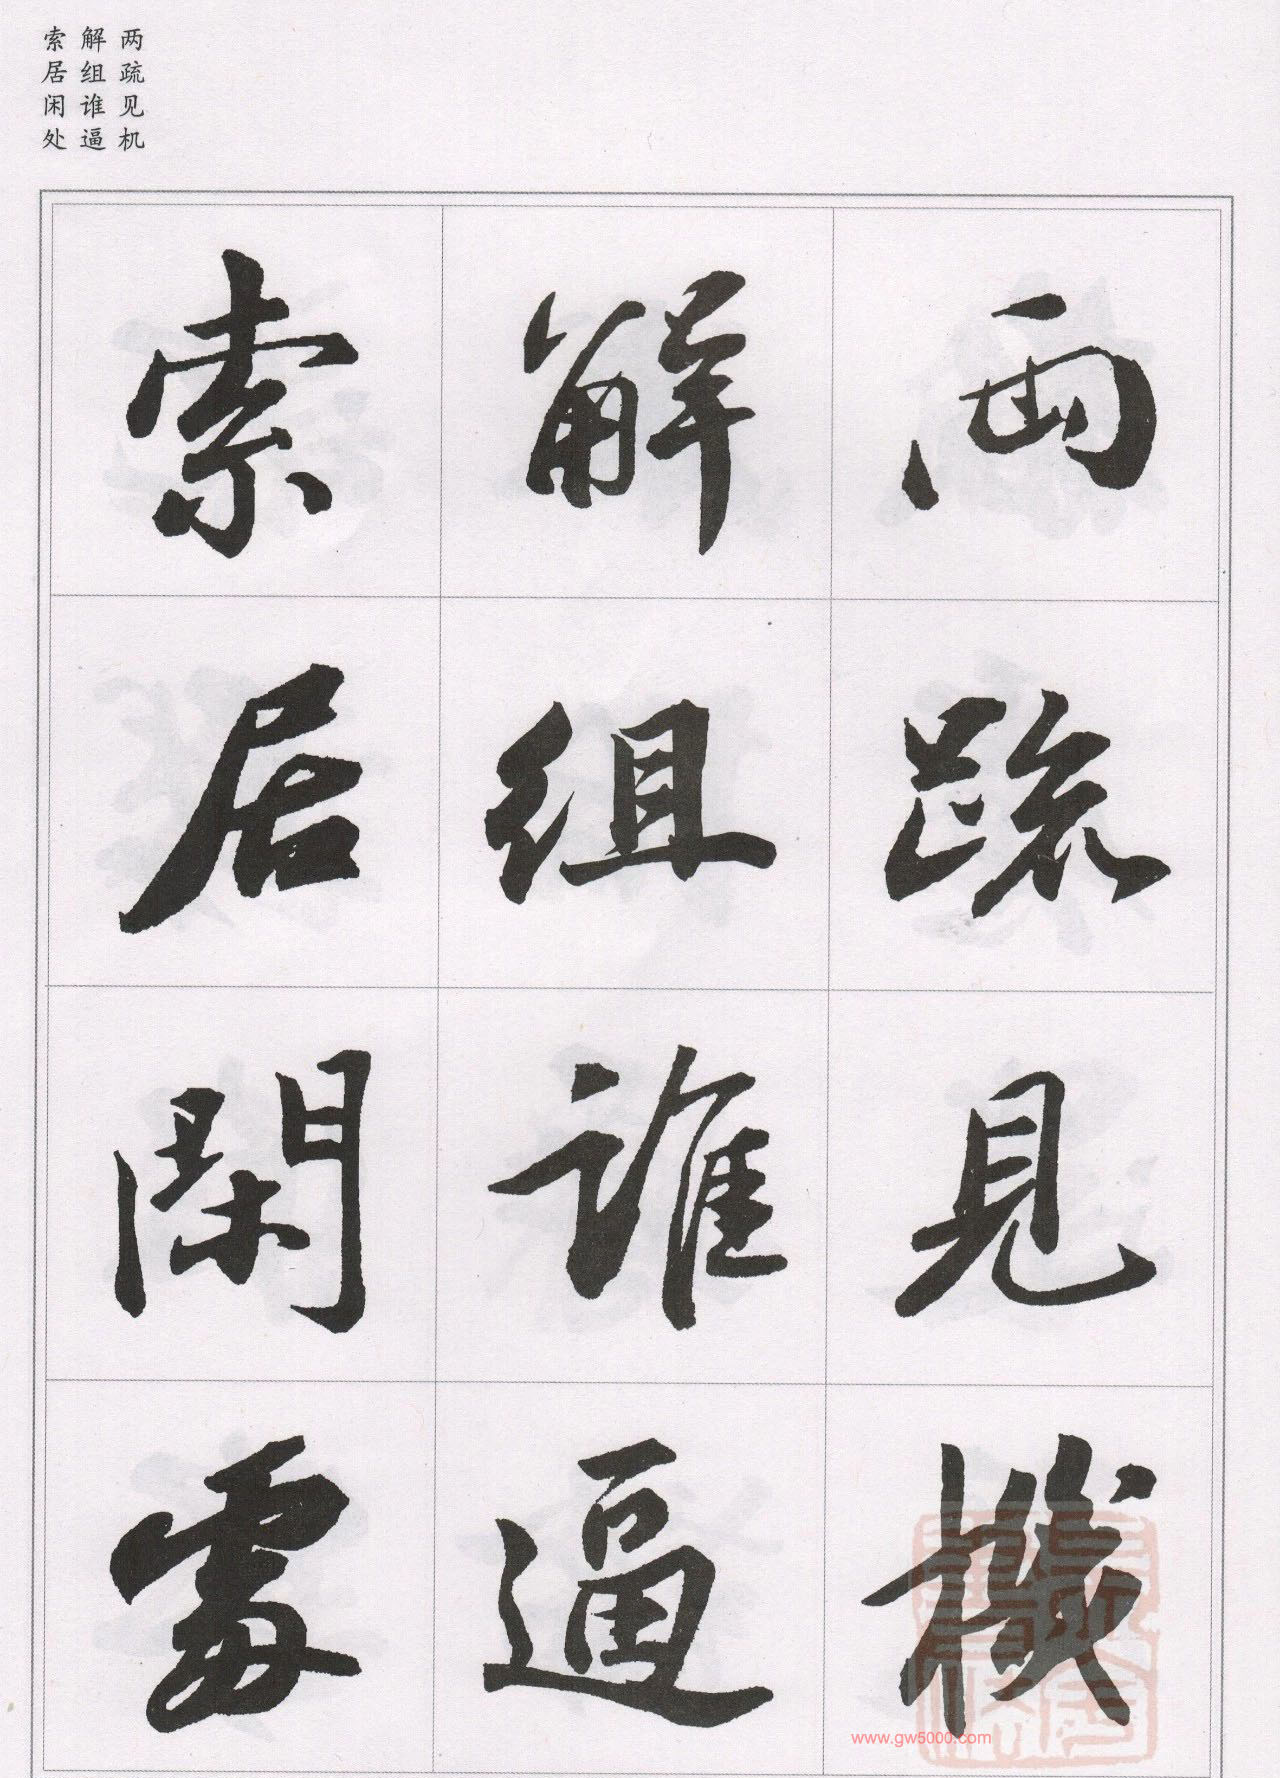 两疏见机
解组谁逼
索居闲处
兩疏見機
解組誰逼
索居閑處
www.gw5000.com